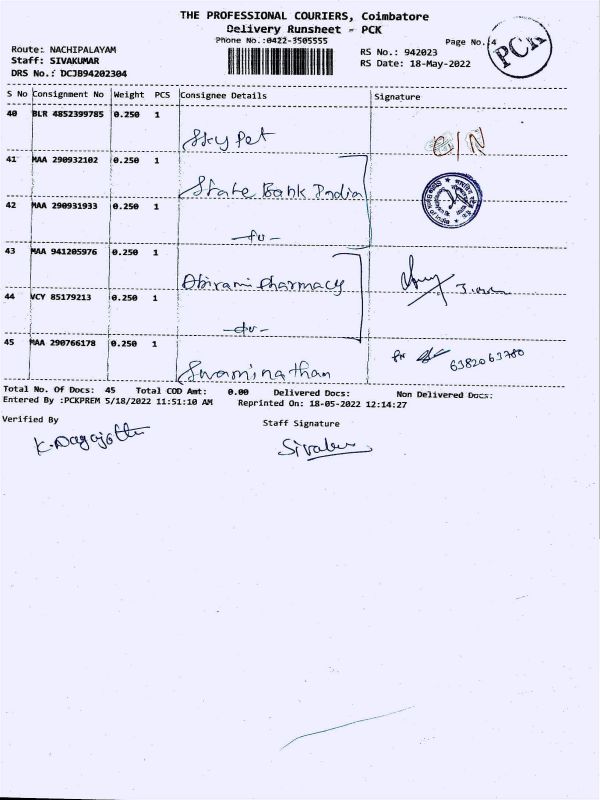 THE PROFESSIONAL COURIERS, Coimbatore
Delivery Runsheet - PCK
Phone No.:0422-3505555
Page No.:4
PCK
Route: NACHIPALAYAM
Staff: SIVAKUMAR
DRS No.: DCJB94202304
RS No.: 942023
RS Date: 18-May-2022
S No Consignment No Weight PCS Consignee Details Signature
40 BLR 4852399785 0.250 1
Sky Pet
41 MAA 290932102 0.250 1
State Bank India
42 MAA 290931933 0.250 1
-do-
43 MAA 941205976 0.250 1
Abirami Pharmacy
44 VCY 85179213 0.250 1
-do-
45 MAA 290766178 0.250 1
Swaminathan
6382063780
Total No. Of Docs: 45 Total COD Amt: 0.00 Delivered Docs: Non Delivered Docs:
Entered By :PCKPREM 5/18/2022 11:51:10 AM Reprinted On: 18-05-2022 12:14:27
Verified By
Staff Signature